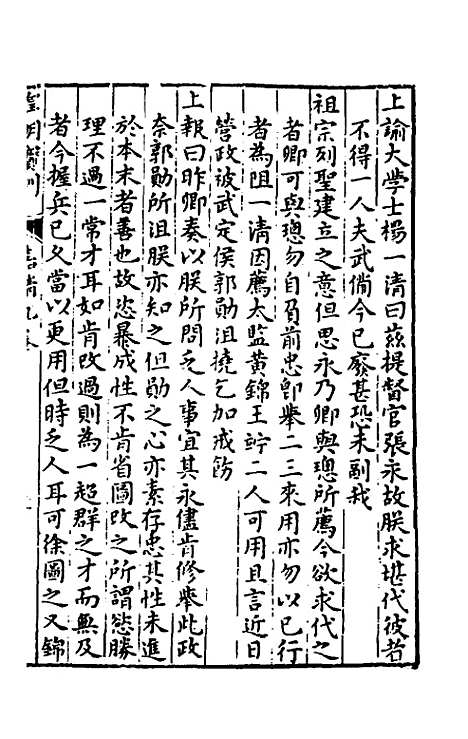 上諭大學士楊一清曰茲提督官張永故朕求堪代彼者
不得一人夫武備今已廢甚恐未副我
祖宗列聖建立之意但思永乃卿與璁所薦今欲求代之
者卿可與璁勿自負前忠卽舉二三來用亦勿以已行
者為阻一清因薦太監黃錦王竚二人可用且言近日
營政被武定侯郭勛沮撓乞加戒飭
上報曰昨卿奏以朕所問乏人事宜其永儘肯修舉此政
奈郭勛所沮朕亦知之但勛之心亦素存忠其性未進
於本末者善也故恣暴成性不肯省圖改之所謂慾勝
理不過一常才耳如肯改過則為一超羣之才而無及
者今握兵已久當以更用但時乏人耳可徐圖之又錦